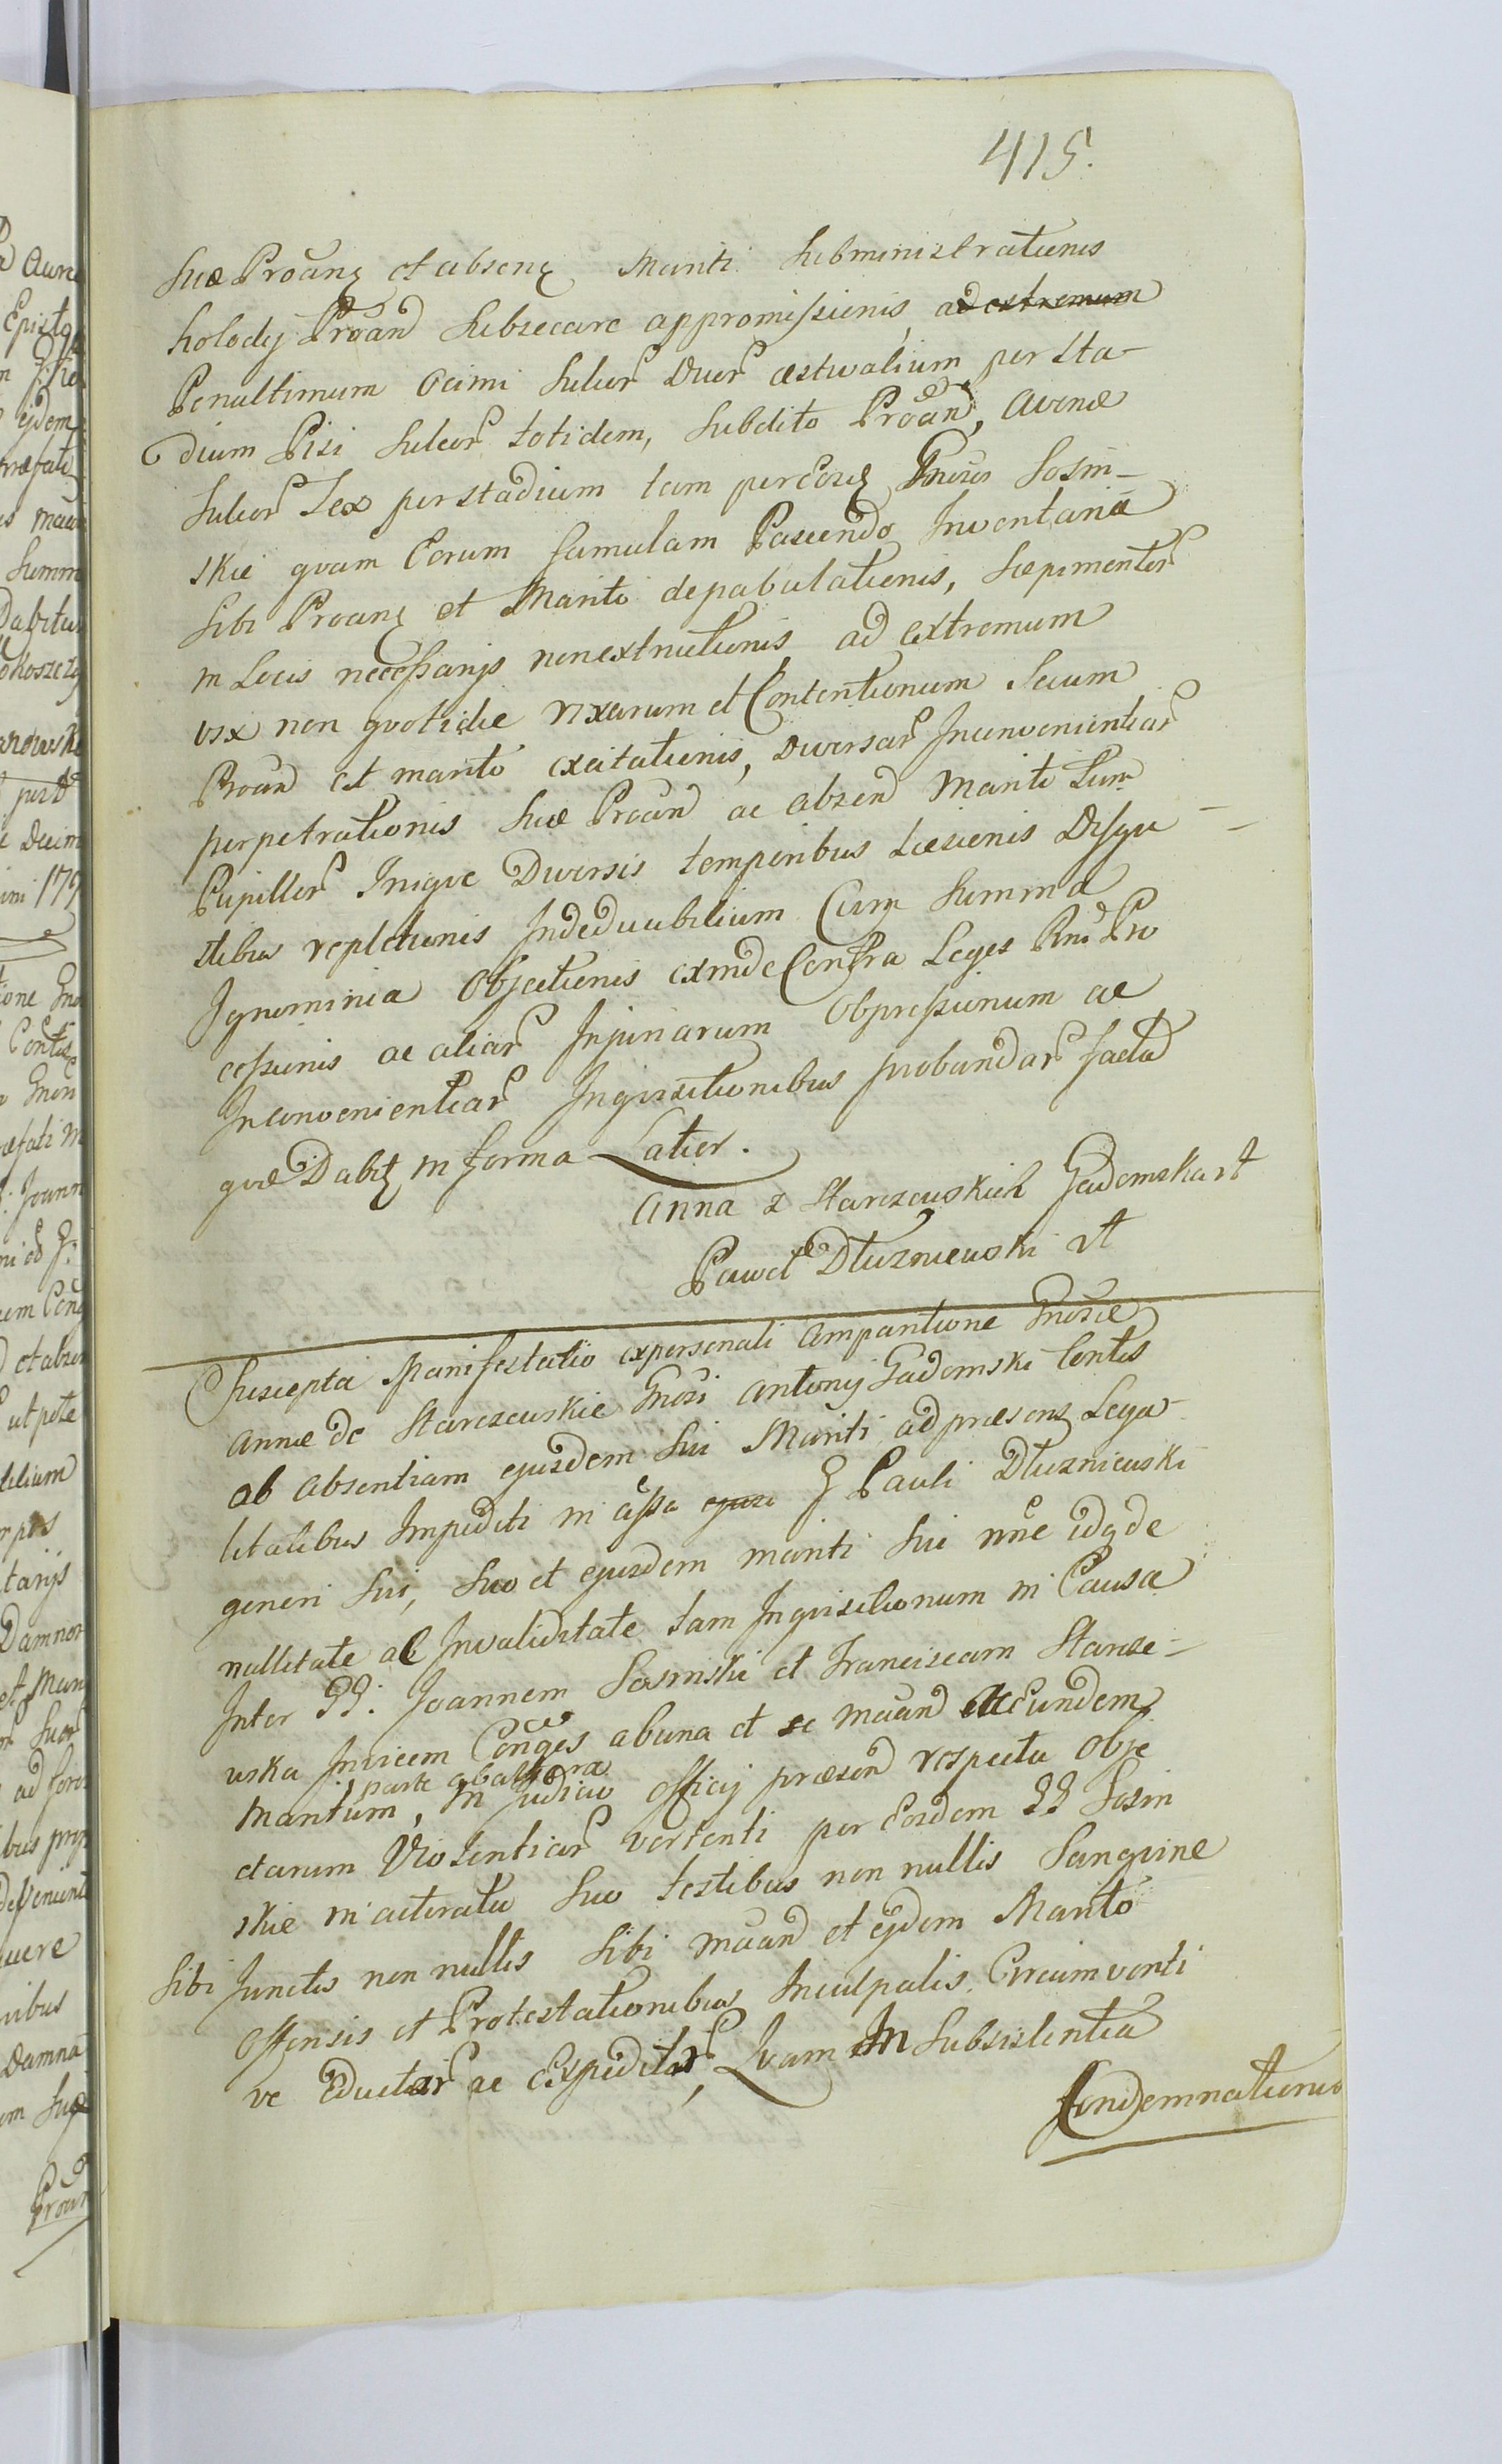 415.
suæ Proanę et absenę Mariti subministrationis
holody Proand subsecare appromissionis, ad extremum
Penultimum Ocimi sulcor duor æstivalium per sta-
dium Pisi sulcor totidem, subdito Proand, Avenæ
sulcor sex per stadium tam per eosdę Gnosos Sosin-
skie qvam Eorum famulam Pascendo Inventaria
sibi Proanę et Marito depabulationis, sæpimentor
in Locis necessarijs non extructionis ad extremum
vix non qvotidie rixarum et Contentionum secum
Proand et marito excitationis, diversar Inconvenientiar
perpetrationis suæ Proand ac absend Mariti sum
Pupillor Iniqve Diversis temporibus læsionis disgu-
stibus repletionis Indeducibilium Cum summa
Ignominia Objectionis exinde Contra Leges Rni Pro
cessionis ac aliar Injuriarum Obpressionum ac
Inconvenientiar Inqvisitionibus probandar facta
qvæ Dabitę in forma Latior.
Anna z Starczewskich Gadomska rt
Paweł Dłuzniewski rt
Suscepta Manifestatio ex personali Comparitione Gnosæ
Annæ de Starczewskie Gnosi Antonij Gadomski Contis
ob absentiam ejusdem sui Mariti ad præsens Lega-
litatibus Impediti in assa G Pauli Dłuzniewski
generi sui, suo et ejusdem mariti sui nne idqde
nullitate ac Invaliditate tam Inqvisitionum in Causa
Inter GG: Joannem Sosinski et Franciscam Starcze-
wska Invicem Conges ab una et se maand ac Eundem
parte ab altera
Maritum, in Judicio officij præsend respectu Obje
ctarum Violentiar vertenti per Eosdem GG Sosin
skie in acticatu suo testibus non nullis Sangvine
sibi Junctis non nullis sibi maand et ejdem Marito
offensis et Protestationibus Inculpatis. Circumventi
ve Eductar ac Expeditar, Qvam In subsistentia
Condemnationis